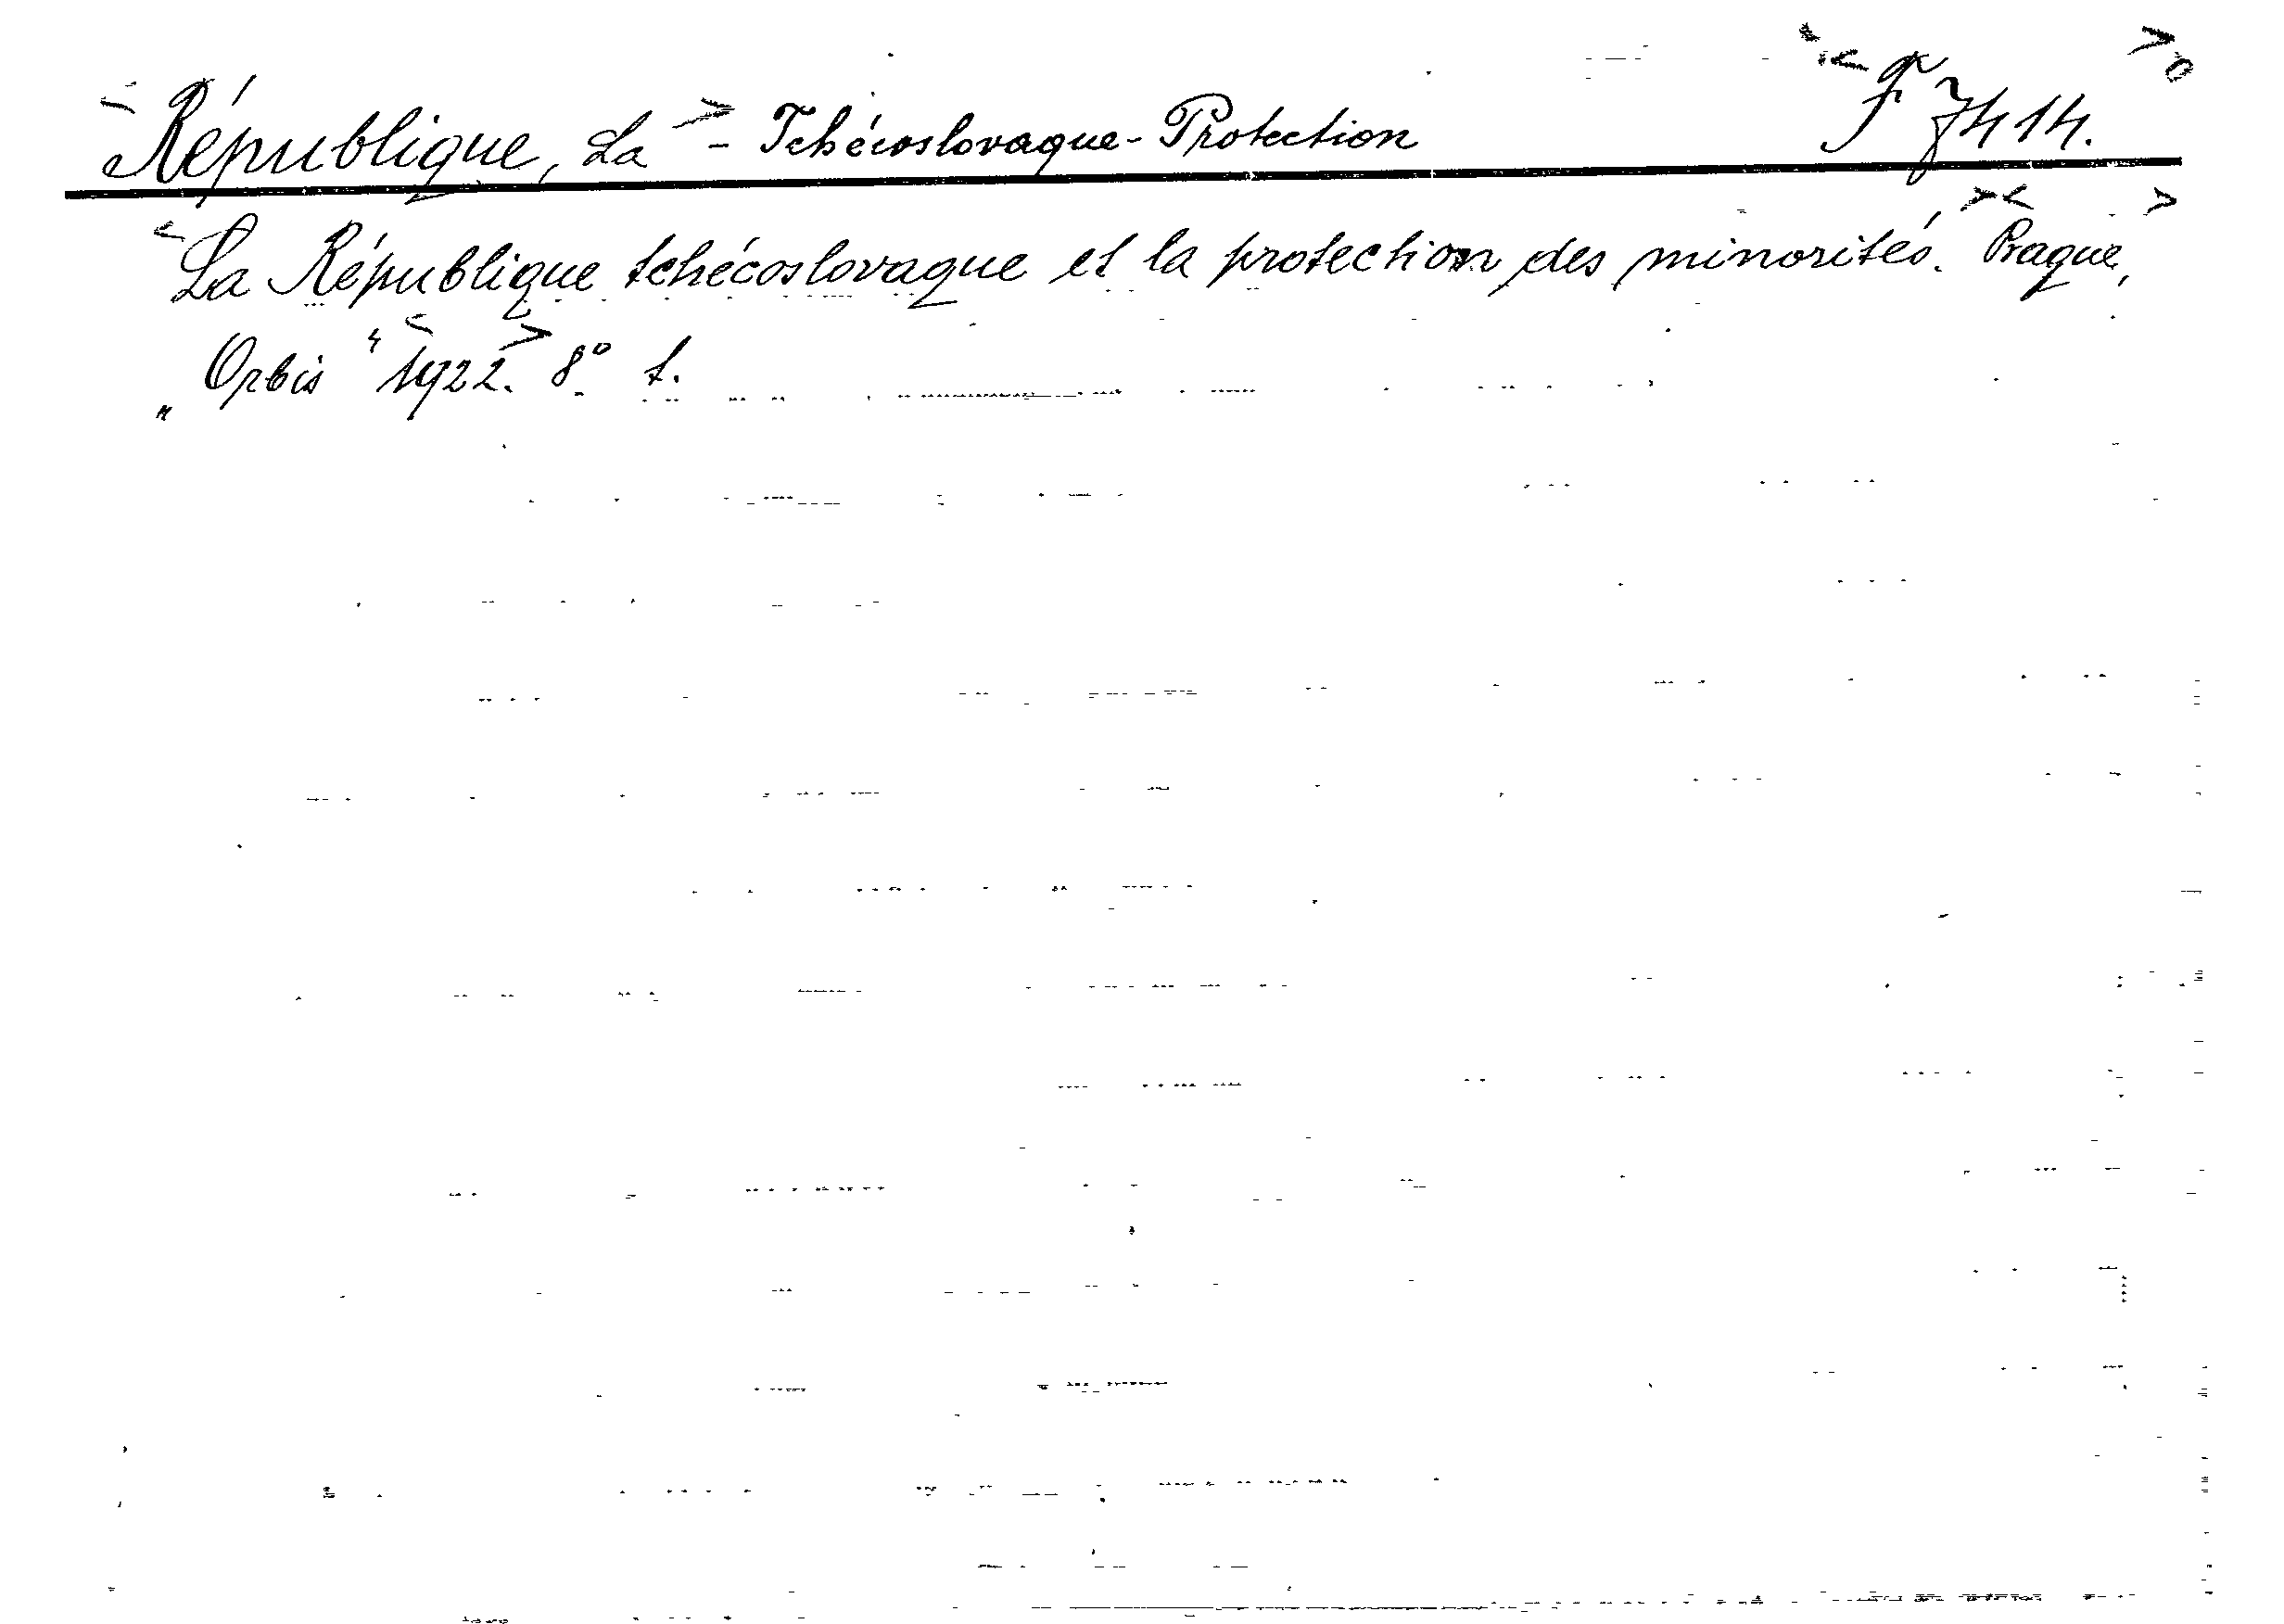 République, La - Tchécoslovaque - Protection F 7414.
La République tchécoslovaque et la protection des minorités. Prague,
„Orbis" 1922. 8°